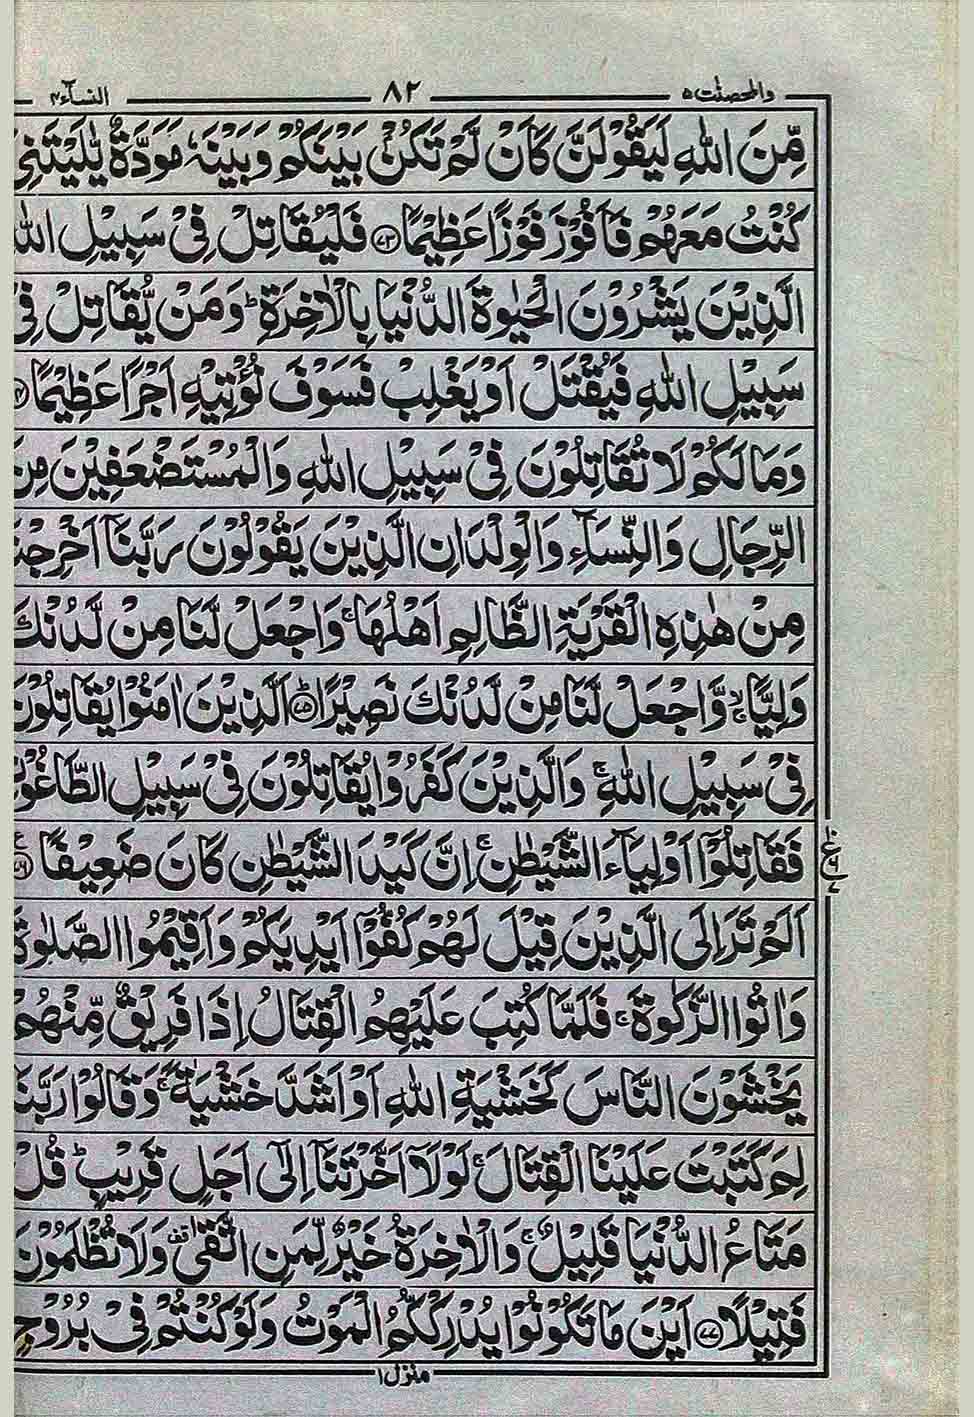 والمحصنت ۵ ۸۲ النسآء ۴
مِّنَ اللّٰهِ لَيَقُوْلَنَّ كَاَنْ لَّمْ تَكُنْۢ بَيْنَكُمْ وَبَيْنَهٗ مَوَدَّةٌ يّٰلَيْتَنِيْ
كُنْتُ مَعَهُمْ فَاَفُوْزَ فَوْزًا عَظِيْمًا ﴿۷۳﴾ فَلْيُقَاتِلْ فِيْ سَبِيْلِ اللّٰهِ
الَّذِيْنَ يَشْرُوْنَ الْحَيٰوةَ الدُّنْيَا بِالْاٰخِرَةِ ؕ وَمَنْ يُّقَاتِلْ فِيْ
سَبِيْلِ اللّٰهِ فَيُقْتَلْ اَوْ يَغْلِبْ فَسَوْفَ نُؤْتِيْهِ اَجْرًا عَظِيْمًا ﴿۷۴﴾
وَمَا لَكُمْ لَا تُقَاتِلُوْنَ فِيْ سَبِيْلِ اللّٰهِ وَالْمُسْتَضْعَفِيْنَ مِنَ
الرِّجَالِ وَالنِّسَآءِ وَالْوِلْدَانِ الَّذِيْنَ يَقُوْلُوْنَ رَبَّنَآ اَخْرِجْنَا
مِنْ هٰذِهِ الْقَرْيَةِ الظَّالِمِ اَهْلُهَا ۚ وَاجْعَلْ لَّنَا مِنْ لَّدُنْكَ
وَلِيًّا ۙۚ وَّاجْعَلْ لَّنَا مِنْ لَّدُنْكَ نَصِيْرًا ﴿۷۵﴾ؕ اَلَّذِيْنَ اٰمَنُوْا يُقَاتِلُوْنَ
فِيْ سَبِيْلِ اللّٰهِ ۚ وَالَّذِيْنَ كَفَرُوْا يُقَاتِلُوْنَ فِيْ سَبِيْلِ الطَّاغُوْتِ
فَقَاتِلُوْٓا اَوْلِيَآءَ الشَّيْطٰنِ ۚ اِنَّ كَيْدَ الشَّيْطٰنِ كَانَ ضَعِيْفًا ﴿۷۶﴾ ع
اَلَمْ تَرَ اِلَى الَّذِيْنَ قِيْلَ لَهُمْ كُفُّوْٓا اَيْدِيَكُمْ وَاَقِيْمُوا الصَّلٰوةَ
وَاٰتُوا الزَّكٰوةَ ۚ فَلَمَّا كُتِبَ عَلَيْهِمُ الْقِتَالُ اِذَا فَرِيْقٌ مِّنْهُمْ
يَخْشَوْنَ النَّاسَ كَخَشْيَةِ اللّٰهِ اَوْ اَشَدَّ خَشْيَةً ۚ وَقَالُوْا رَبَّنَا
لِمَ كَتَبْتَ عَلَيْنَا الْقِتَالَ ۚ لَوْلَآ اَخَّرْتَنَآ اِلٰٓى اَجَلٍ قَرِيْبٍ ؕ قُلْ
مَتَاعُ الدُّنْيَا قَلِيْلٌ ۚ وَالْاٰخِرَةُ خَيْرٌ لِّمَنِ اتَّقٰى ۫ وَلَا تُظْلَمُوْنَ
فَتِيْلًا ﴿۷۷﴾ اَيْنَ مَا تَكُوْنُوْا يُدْرِكْكُّمُ الْمَوْتُ وَلَوْ كُنْتُمْ فِيْ بُرُوْجٍ
منزل ۱